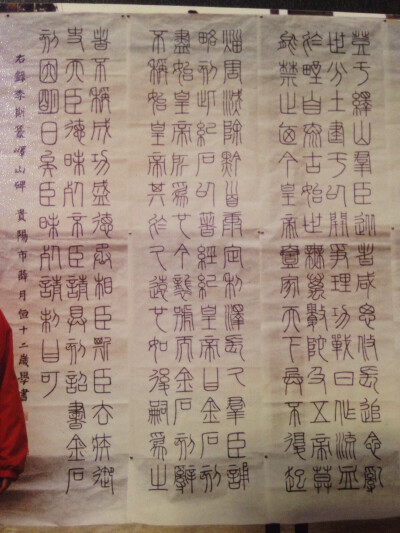 登于繹山群臣從者咸思攸長追念亂
世分土建邦以開爭理功戰日作流血
於野自泰古始世無萬數陀及五帝莫
能禁止廼今皇帝壹家天下兵不復起
災害滅除黔首康定利澤長久群臣誦
略刻此樂石以著經紀皇帝曰金石刻
盡始皇帝所為也今襲號而金石刻辭
不稱始皇帝其於久遠也如後嗣為之
者不稱成功盛德丞相臣斯臣去疾御
史夫臣德昧死言臣請具刻詔書金石
刻因明白矣臣昧死請制曰可
右錄李斯篆嶧山碑 貴陽市蔣月十二歲學書